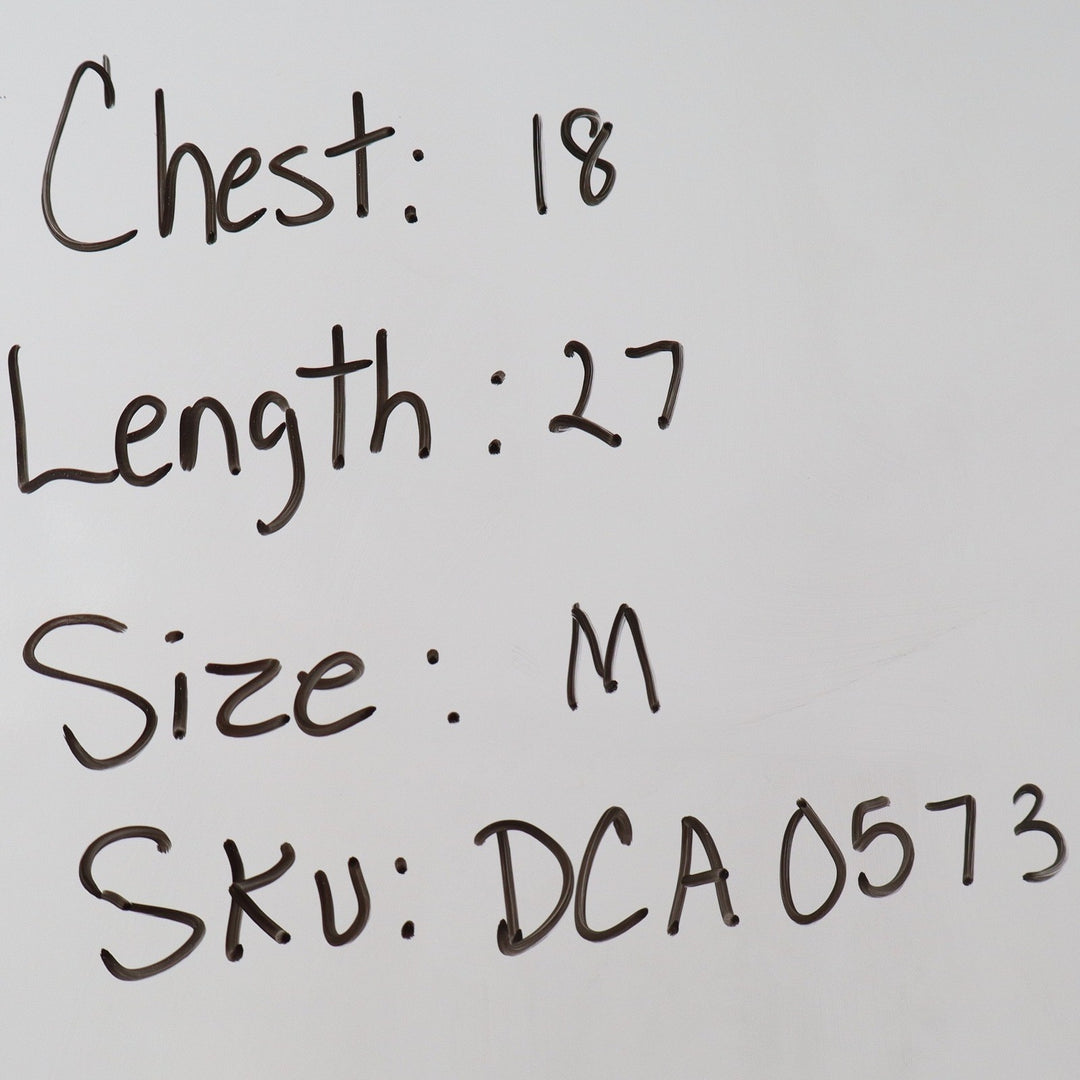 Chest: 18
Length: 27
Size: M
SKU: DCA0573